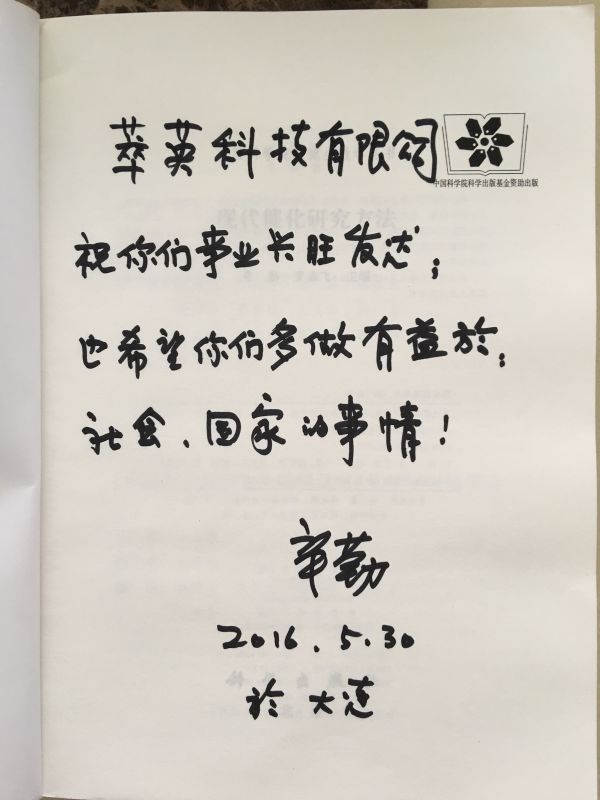 萃英科技有限公司
中国科学院科学出版基金资助出版
祝你们事业兴旺发达；
也希望你们多做有益於：
社会、国家的事情！
辛勤
2016.5.30
於大连
现代催化研究方法